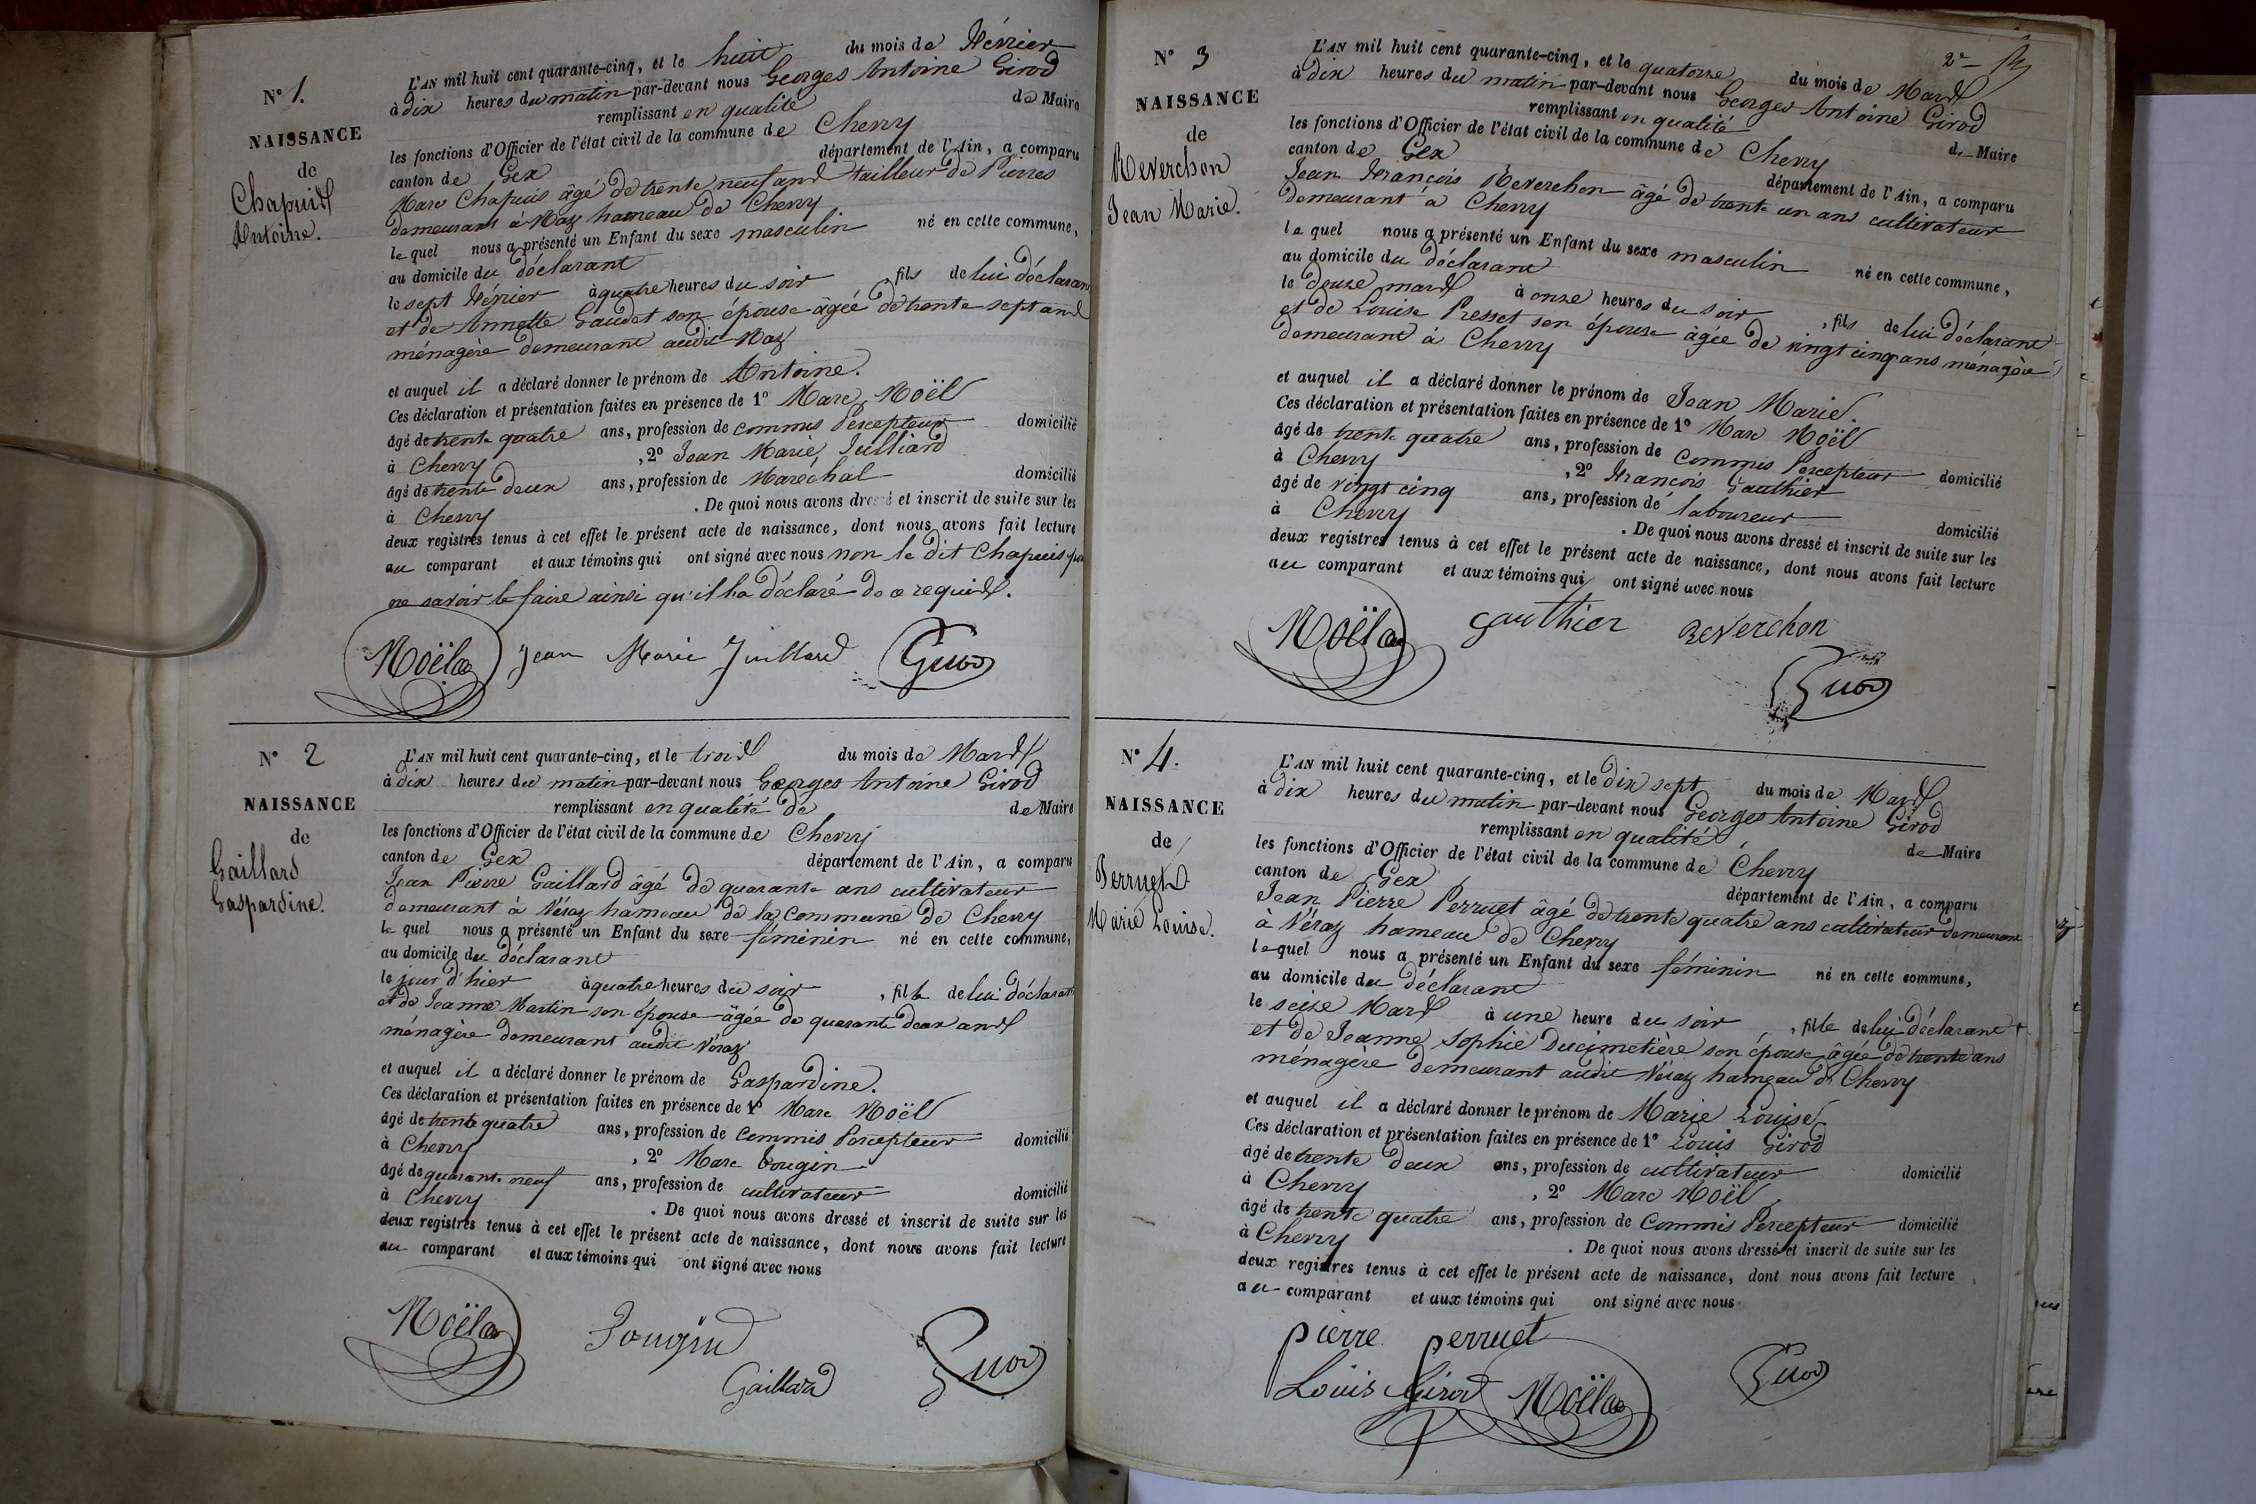 N° 1.
NAISSANCE
de
Chapuis
Antoine.
L'AN mil huit cent quarante-cinq, et le huit du mois de Février
à dix heures du matin par-devant nous Georges Antoine Girod
remplissant en qualité de Maire
les fonctions d'Officier de l'état civil de la commune de Chevry
canton de Gex département de l'Ain, a comparu
Marc Chapuis âgé de trente neuf ans tailleur de Pierres
demeurant à Naz hameau de Chevry
lequel nous a présenté un Enfant du sexe masculin né en cette commune,
au domicile du déclarant
le sept Février à quatre heures du soir fils de lui déclarant
et de Annette Gaudet son épouse âgée de trente sept ans
ménagère demeurant audit Naz
et auquel il a déclaré donner le prénom de Antoine.
Ces déclaration et présentation faites en présence de 1° Marc Noël
âgé de trente quatre ans, profession de commis Percepteur domicilié
à Chevry , 2° Jean Marie Julliard
âgé de trente deux ans, profession de Maréchal domicilié
à Chevry . De quoi nous avons dressé et inscrit de suite sur les
deux registres tenus à cet effet le présent acte de naissance, dont nous avons fait lecture
au comparant et aux témoins qui ont signé avec nous non le dit Chapuis pour
ne savoir le faire ainsi qu'il l'a déclaré de ce requis.
Noël Jean Marie Juillard Girod
N° 2
NAISSANCE
de
Gaillard
Gaspardine.
L'AN mil huit cent quarante-cinq, et le trois du mois de Mars
à dix heures du matin par-devant nous Georges Antoine Girod
remplissant en qualité de de Maire
les fonctions d'Officier de l'état civil de la commune de Chevry
canton de Gex département de l'Ain, a comparu
Jean Pierre Gaillard âgé de quarante ans cultivateur
demeurant à Véraz hameau de la Commune de Chevry
lequel nous a présenté un Enfant du sexe féminin né en cette commune,
au domicile du déclarant
le jour d'hier à quatre heures du soir , fille de lui déclarant
et de Jeanne Martin son épouse âgée de quarante deux ans
ménagère demeurant audit Véraz
et auquel il a déclaré donner le prénom de Gaspardine.
Ces déclaration et présentation faites en présence de 1° Marc Noël
âgé de trente quatre ans, profession de Commis Percepteur domicilié
à Chevry , 2° Marc Bougin
âgé de quarante neuf ans, profession de cultivateur domicilié
à Chevry . De quoi nous avons dressé et inscrit de suite sur les
deux registres tenus à cet effet le présent acte de naissance, dont nous avons fait lecture
au comparant et aux témoins qui ont signé avec nous
Noël Bougin Girod
Gaillard
2e
N° 3
NAISSANCE
de
Reverchon
Jean Marie.
L'AN mil huit cent quarante-cinq, et le quatorze du mois de Mars
à dix heures du matin par-devant nous Georges Antoine Girod
remplissant en qualité de Maire
les fonctions d'Officier de l'état civil de la commune de Chevry
canton de Gex département de l'Ain, a comparu
Jean François Reverchon âgé de trente un ans cultivateur
demeurant à Chevry
lequel nous a présenté un Enfant du sexe masculin né en cette commune,
au domicile du déclarant
le douze mars à onze heures du soir , fils de lui déclarant
et de Louise Presset son épouse âgée de vingt cinq ans ménagère
demeurant à Chevry
et auquel il a déclaré donner le prénom de Jean Marie.
Ces déclaration et présentation faites en présence de 1° Marc Noël
âgé de trente quatre ans, profession de Commis Percepteur domicilié
à Chevry , 2° François Gauthier
âgé de vingt cinq ans, profession de laboureur domicilié
à Chevry . De quoi nous avons dressé et inscrit de suite sur les
deux registres tenus à cet effet le présent acte de naissance, dont nous avons fait lecture
au comparant et aux témoins qui ont signé avec nous
Noël Gauthier Reverchon
Girod
N° 4.
NAISSANCE
de
Perruet
Marie Louise.
L'AN mil huit cent quarante-cinq, et le dix sept du mois de Mars
à dix heures du matin par-devant nous Georges Antoine Girod
remplissant en qualité de Maire
les fonctions d'Officier de l'état civil de la commune de Chevry
canton de Gex département de l'Ain, a comparu
Jean Pierre Perruet âgé de trente quatre ans cultivateur demeurant
à Véraz hameau de Chevry
lequel nous a présenté un Enfant du sexe féminin né en cette commune,
au domicile du déclarant
le seize Mars à une heure du soir , fille de lui déclarant
et de Jeanne Sophie Ducimetière son épouse âgée de trente ans
ménagère demeurant audit Véraz hameau de Chevry
et auquel il a déclaré donner le prénom de Marie Louise
Ces déclaration et présentation faites en présence de 1° Louis Girod
âgé de trente deux ans, profession de cultivateur domicilié
à Chevry , 2° Marc Noël
âgé de trente quatre ans, profession de Commis Percepteur domicilié
à Chevry . De quoi nous avons dressé et inscrit de suite sur les
deux registres tenus à cet effet le présent acte de naissance, dont nous avons fait lecture
au comparant et aux témoins qui ont signé avec nous
pierre perruet
Louis Girod Noël Girod